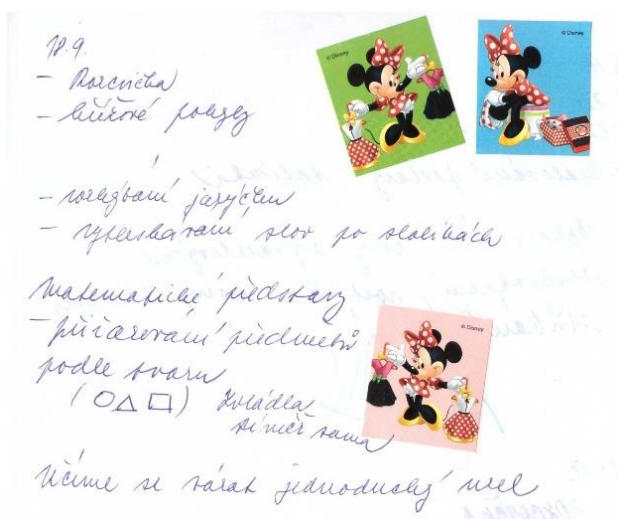 18.9.
- Rozcvička
- křížové pohyby
- rozhýbání jazýčku
- vyťukávání slov po slabikách
Matematické představy
- přiřazování předmětů
podle tvaru
( ○ △ □ ) Zvládla
téměř sama
Učíme se vázat jednoduchý uzel
© Disney
© Disney
© Disney